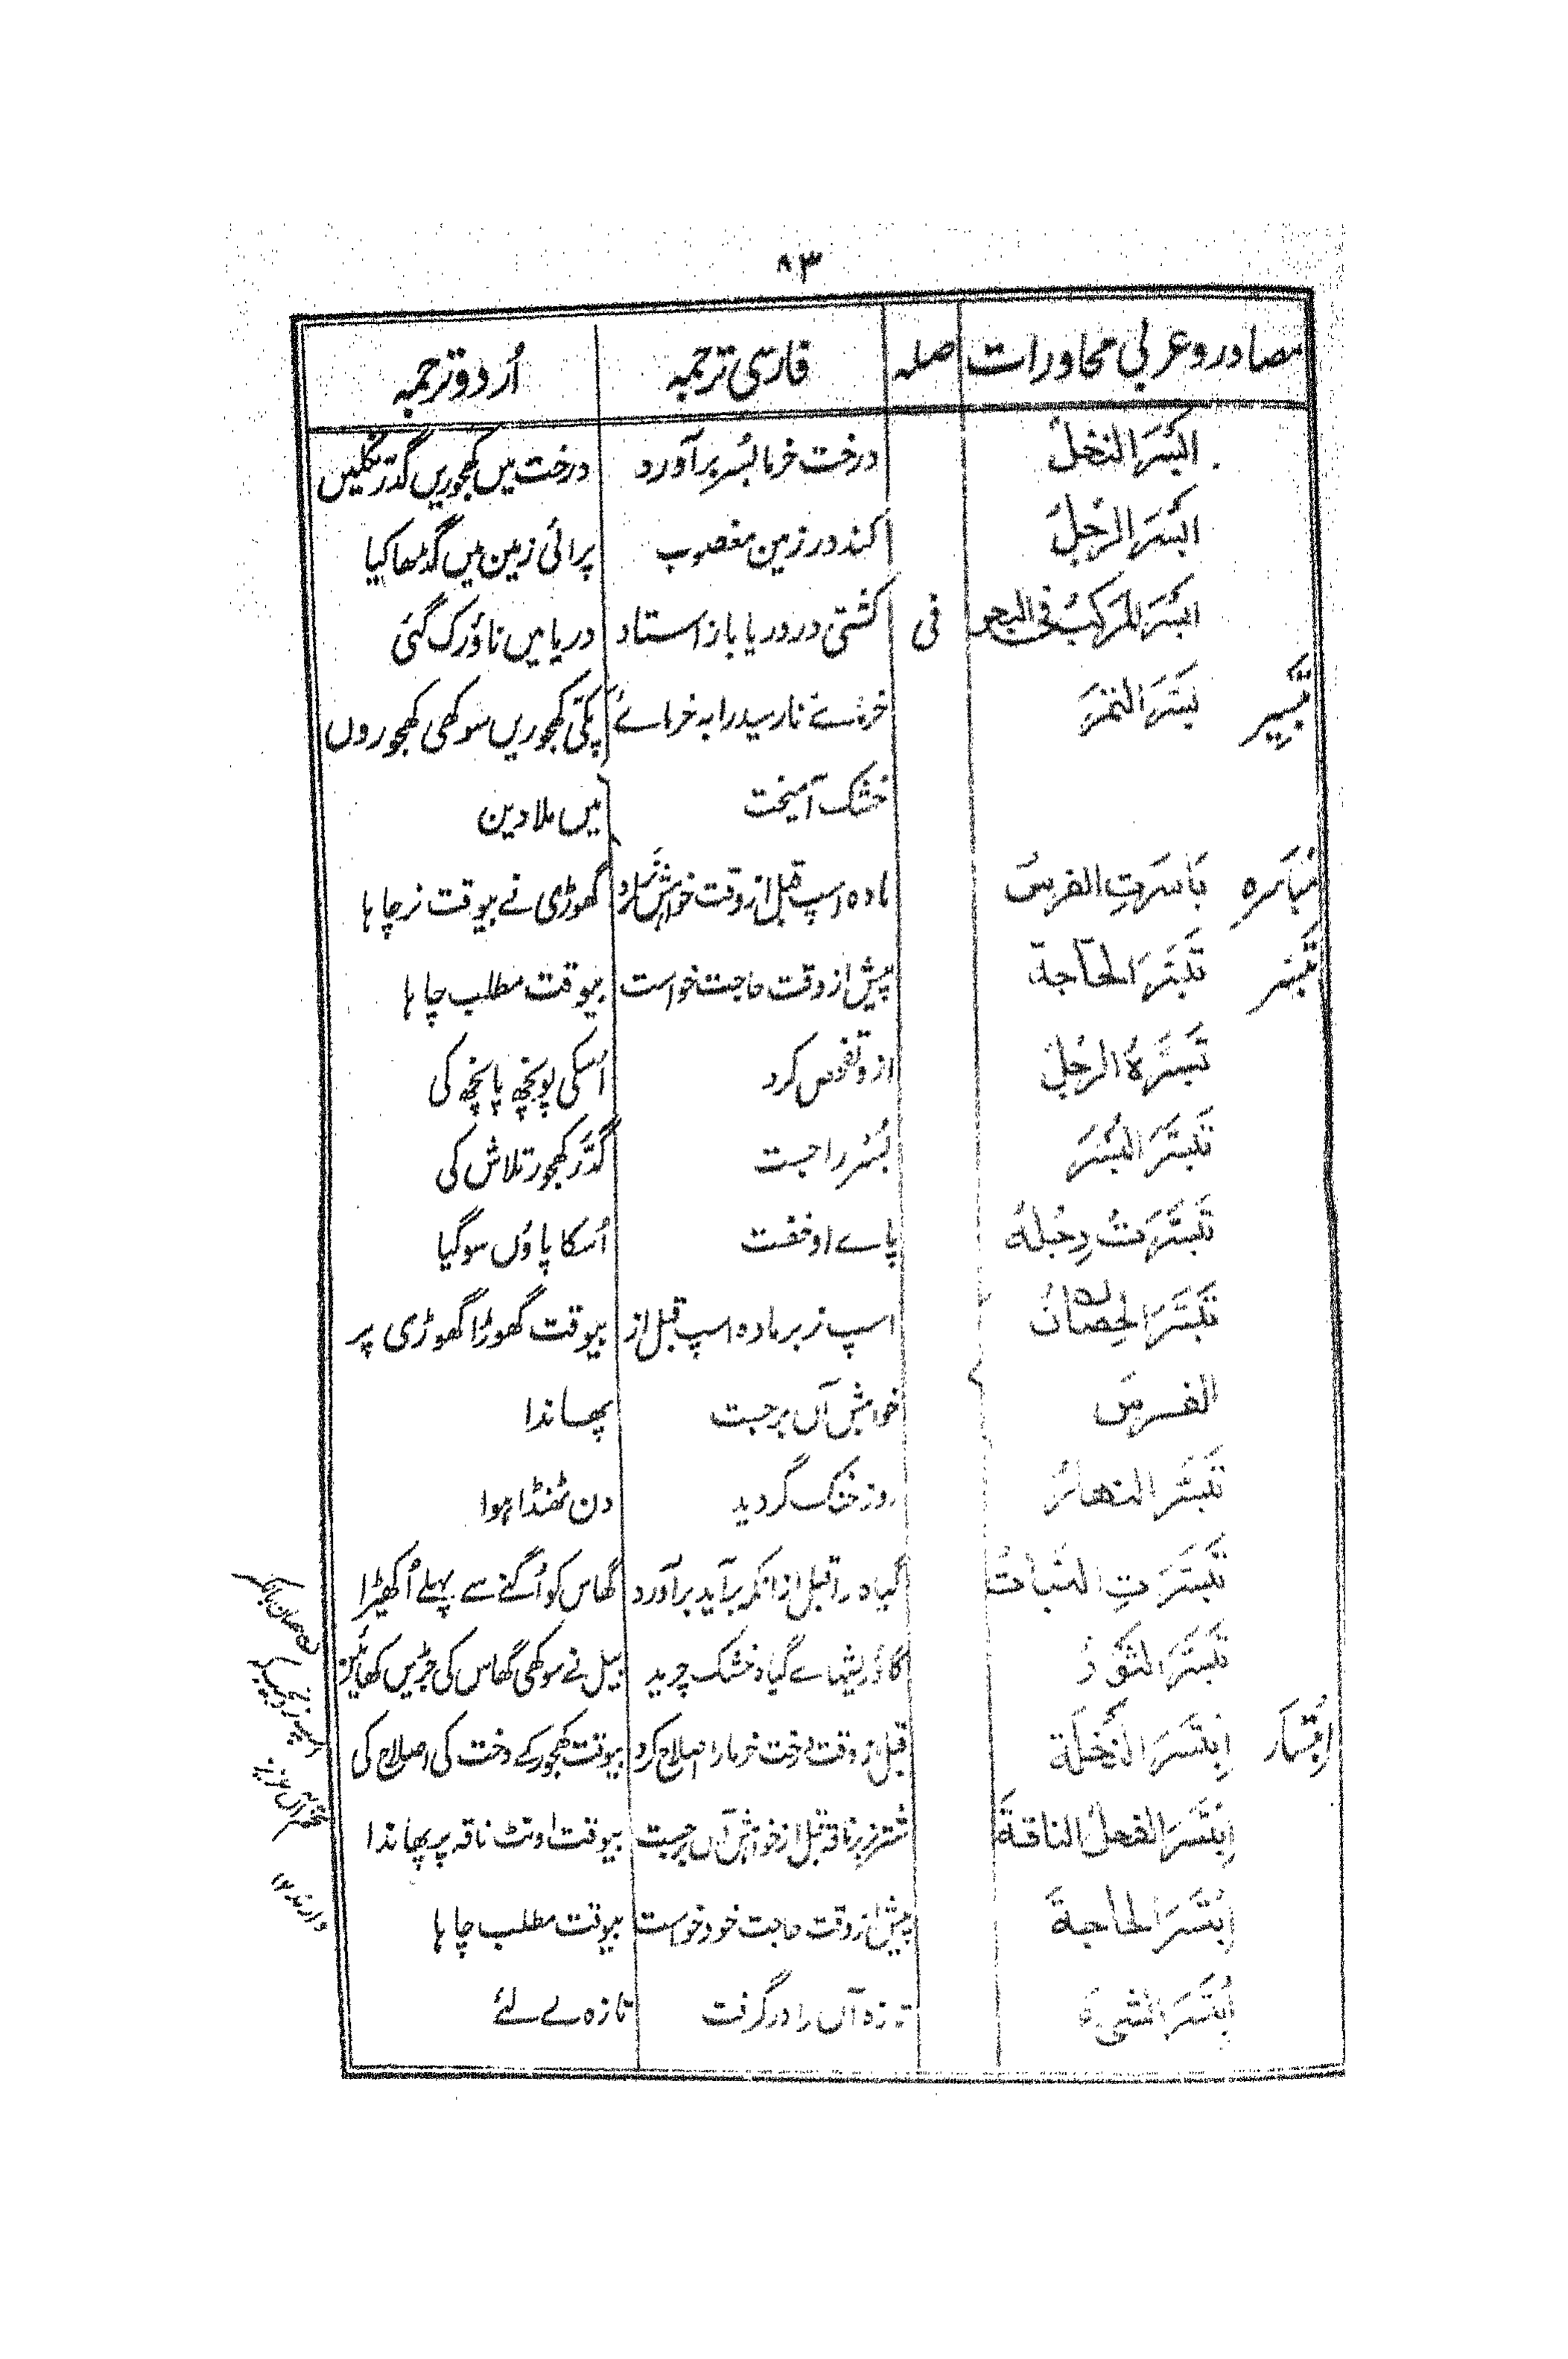 ۸۳
مصادر و عربی محاورات صلہ فارسی ترجمہ اُردو ترجمہ
اَبْسَرَ النخلُ درخت خرما بُسر برآورد درخت میں کھجوریں گدّر نکلیں
اَبْسَرَ الرَّجُلُ کند در زمین مغصوب پرائی زمین میں گڈھا کیا
اَبْسَرَ المَرْكَبُ فِی البحرِ فی کشتی در دریا باز استاد دریا میں ناؤ رک گئی
تَبْسِیر بَسَّرَ التمرَ خرمائے نارسیدرا بہ خرمائے پکّی کھجوریں سوکھی کھجوروں
خشک آمیخت میں ملا دین
مُبَاسَرہ بَاسَرَتِ الفرسُ مادہ اسپ قبل از وقت خواہش نر کرد گھوڑی نے بیوقت نر چاہا
تَبَسُّر تَبَسَّرَ الحَاجةَ پیش از وقت حاجت خواست بیوقت مطلب چاہا
تَبَسَّرَہُ الرَّجُلُ ازو تفحص کرد اُسکی پونچھ پانچھ کی
تَبَسَّرَ البُسْرَ بُسْر را جست گدَّر کھجور تلاش کی
تَبَسَّرَتْ رِجْلُهُ پاے او خفت اُسکا پاؤں سو گیا
تَبَسَّرَ الحِصَانُ اسپ نر بر مادہ اسپ قبل از بیوقت گھوڑا گھوڑی پر
الفرسَ خواہش آں برجست پھاندا
تَبَسَّرَ النھارُ روز خنک گردید دن ٹھنڈا ہوا
تَبَسَّرَتِ النَّبَاتُ گیاہ را قبل از انکہ برآید برآورد گھاس کو اُگنے سے پہلے اُکھیڑا
تَبَسَّرَ الثَّوْرُ گاؤ ریشہاے گیاہ خشک چرید بیل نے سوکھی گھاس کی جڑیں کھائیں
اِبْتِسَار اِبْتَسَرَ النَّخْلَةَ قبل از وقت درخت خرما را اصلاح کرد بیوقت کھجور کے درخت کی اصلاح کی
اِبْتَسَرَ الفحلُ الناقةَ شتر نر بر ناقہ قبل از خواہش آں برجست بیوقت اونٹ ناقہ پر پھاندا
اِبْتَسَرَ الحاجةَ پیش از وقت حاجت خود خواست بیوقت مطلب چاہا
اُبْتُسَرَ الشیءَ تازہ آں را در گرفت تازہ لے لئے